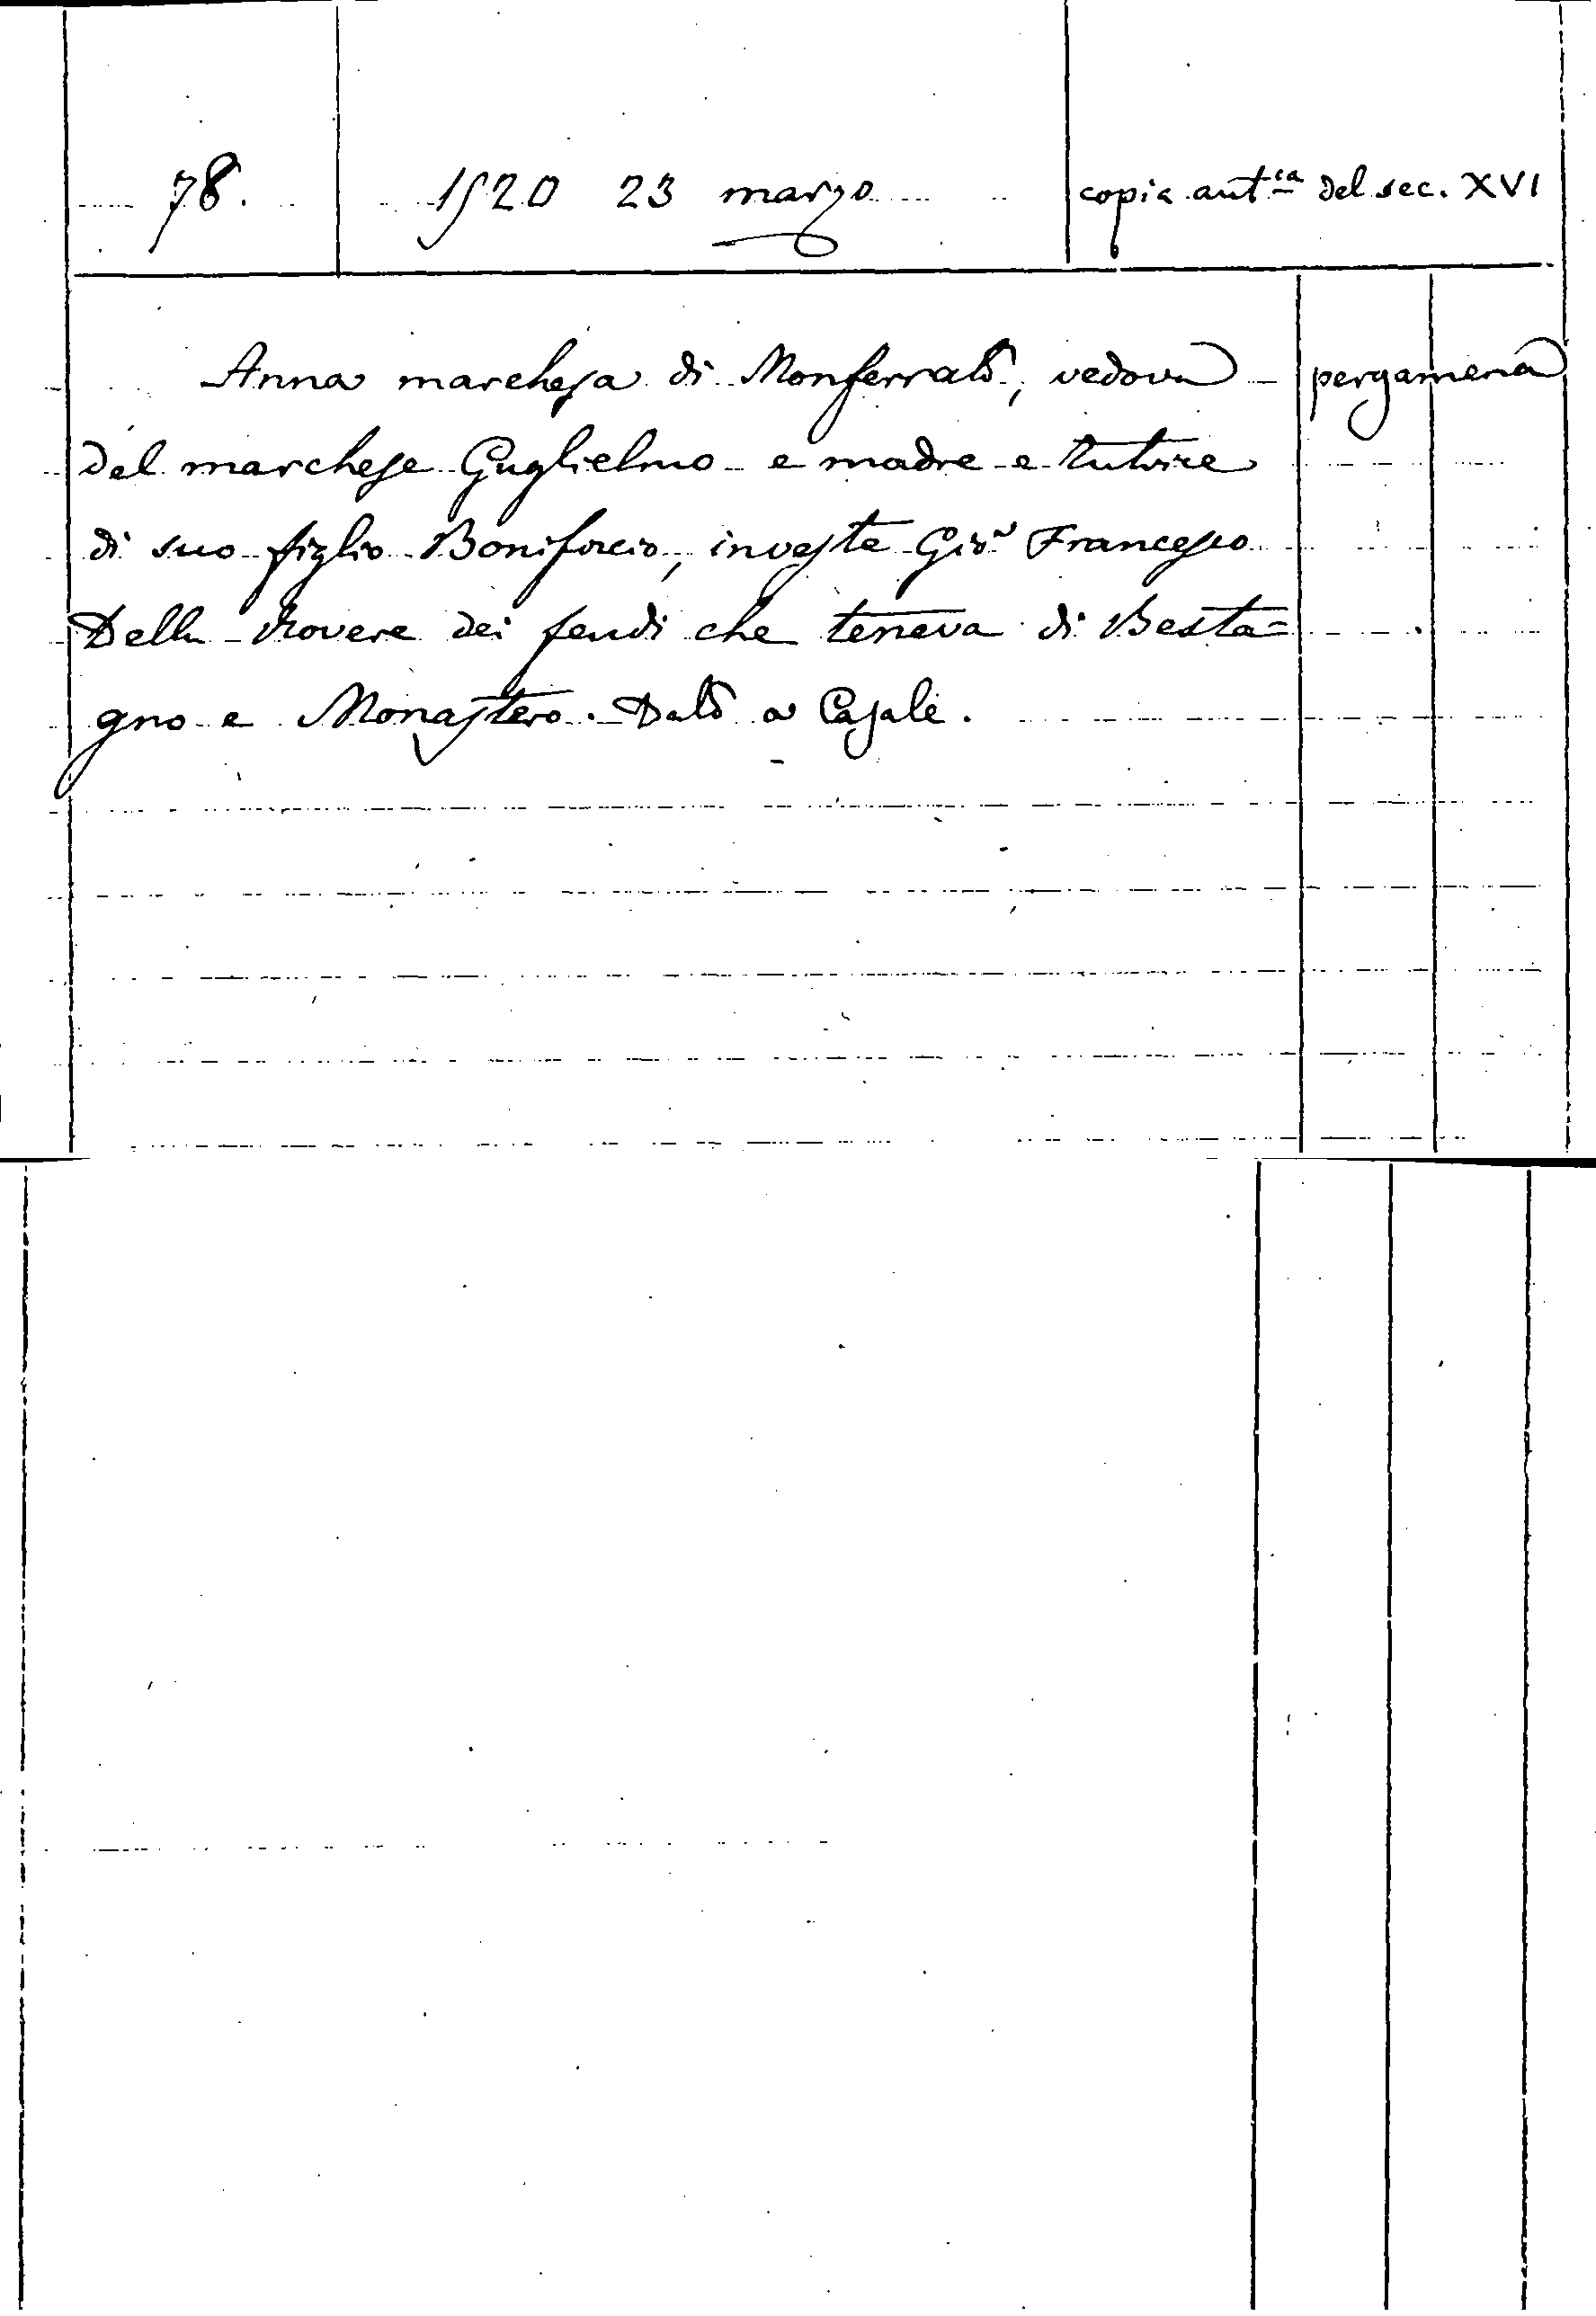 78. 1520 23 marzo copia aut.ca del sec. XVI
Anna marchesa di Monferrato, vedova pergamena
del marchese Guglielmo e madre e tutrice
di suo figlio Bonifacio, investe Gio. Francesco
Della Rovere dei feudi che teneva di Besta=
gno e Monastero. Dato a Casale.